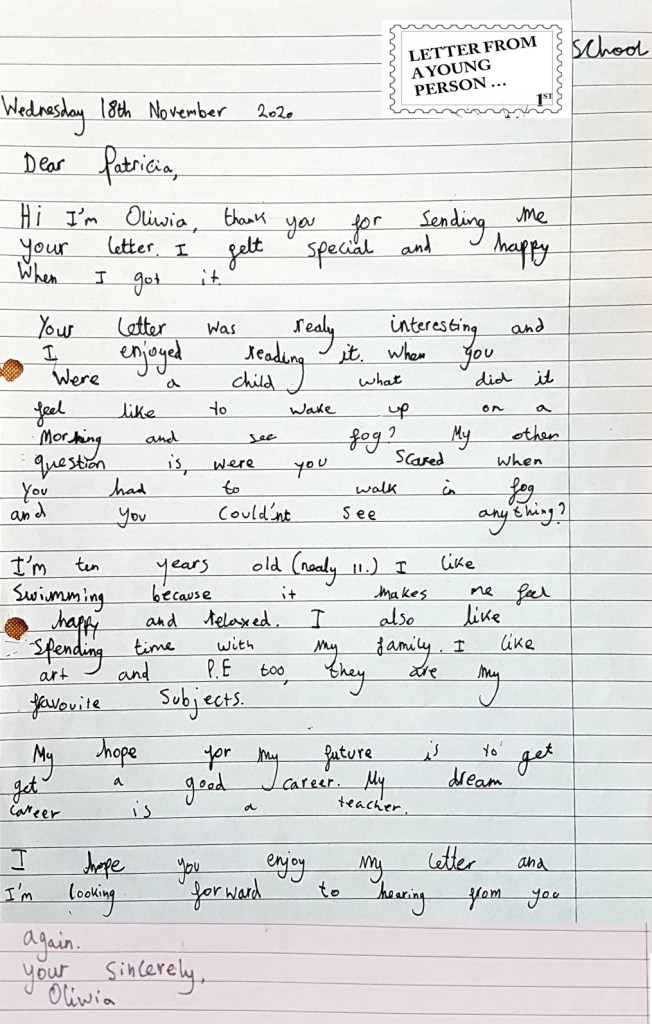 LETTER FROM
A YOUNG
PERSON ...
1ST
School
Wednesday 18th November 2020
Dear Patricia,
Hi I'm Oliwia, thank you for sending me
your letter. I felt special and happy
When I got it.
Your letter was realy interesting and
I enjoyed reading it. When you
Were a child what did it
feel like to wake up on a
Morning and see fog? My other
question is, were you scared when
you had to walk in fog
and you Could'nt see anything?
I'm ten years old (nealy 11.) I like
Swimming because it makes me feel
happy and relaxed. I also like
Spending time with my family. I like
art and P.E too, they are my
favouite Subjects.
My hope for my future is to get
get a good career. My dream
career is a teacher.
I hope you enjoy my letter and
I'm looking forward to hearing from you
again.
your sincerely,
Oliwia